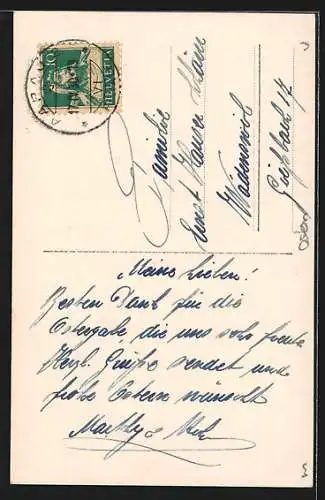 10
HELVETIA
AARAU
Familie
Ernst Hauser
Wädenswil
17
Meine Lieben!
Besten Dank für die
Ostergabe, die uns sehr freute
Herzl. Grüße sendet und
frohe Ostern wünscht